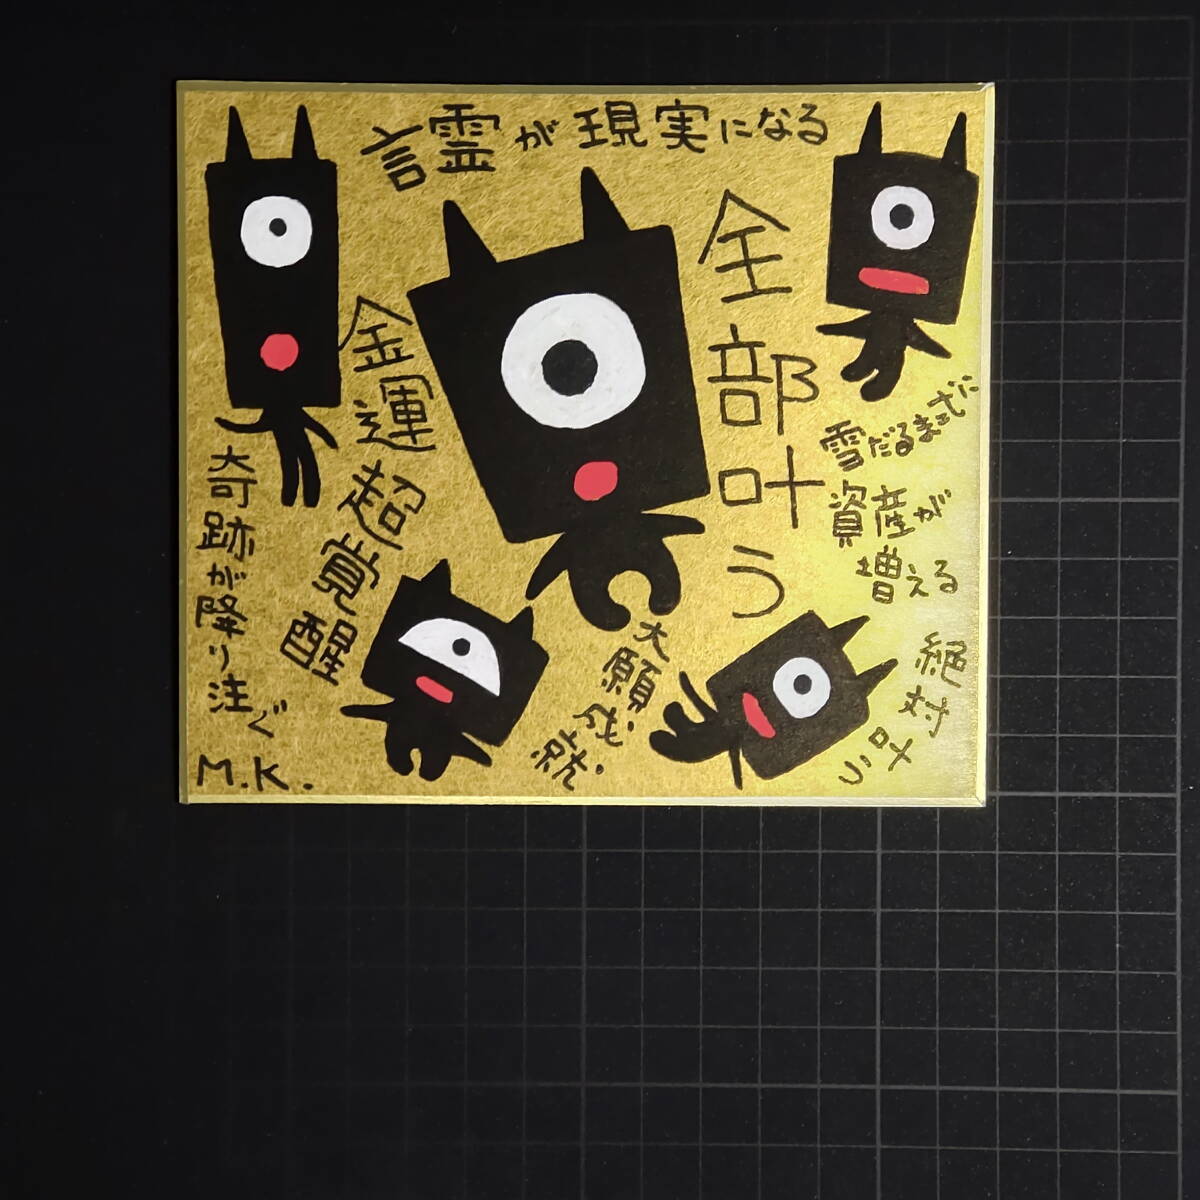 言霊が現実になる
全部叶う
金運超覚醒
奇跡が降り注ぐ
雪だるま式に
資産が
増える
絶対叶う
大願成就
M.K.